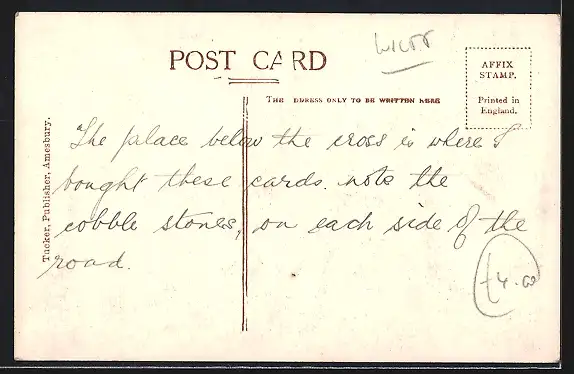 POST CARD
AFFIX
STAMP.
Printed in
England.
THE  DDRESS ONLY TO BE WRITTEN HERE
Tucker, Publisher, Amesbury.
The palace below the cross is where I
bought these cards. note the
cobble stones, on each side of the
road.
£4.00